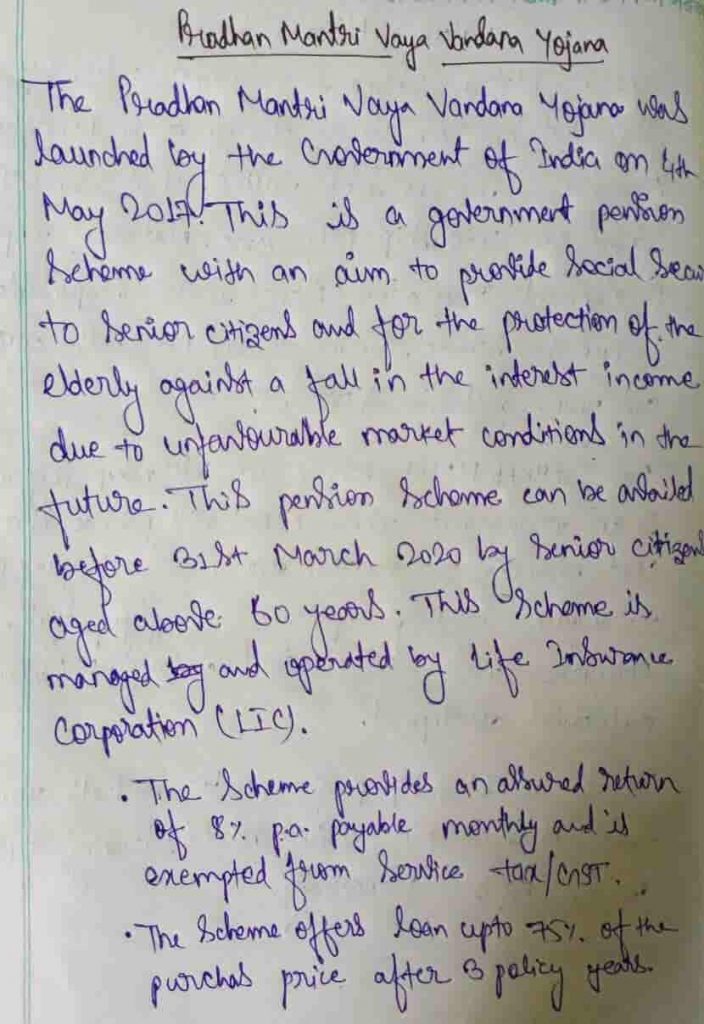 Pradhan Mantri Vaya Vandana Yojana
The Pradhan Mantri Vaya Vandana Yojana was
launched by the Government of India on 4th
May 2017. This is a government pension
scheme with an aim to provide social secu
to senior citizens and for the protection of the
elderly against a fall in the interest income
due to unfavourable market conditions in the
future. This pension scheme can be availed
before 31st March 2020 by senior citizens
aged above 60 years. This scheme is
managed and operated by Life Insurance
Corporation (LIC).
• The Scheme provides an assured return
of 8% p.a. payable monthly and is
exempted from service tax/GST.
• The Scheme offers loan upto 75% of the
purchas price after 3 policy years.